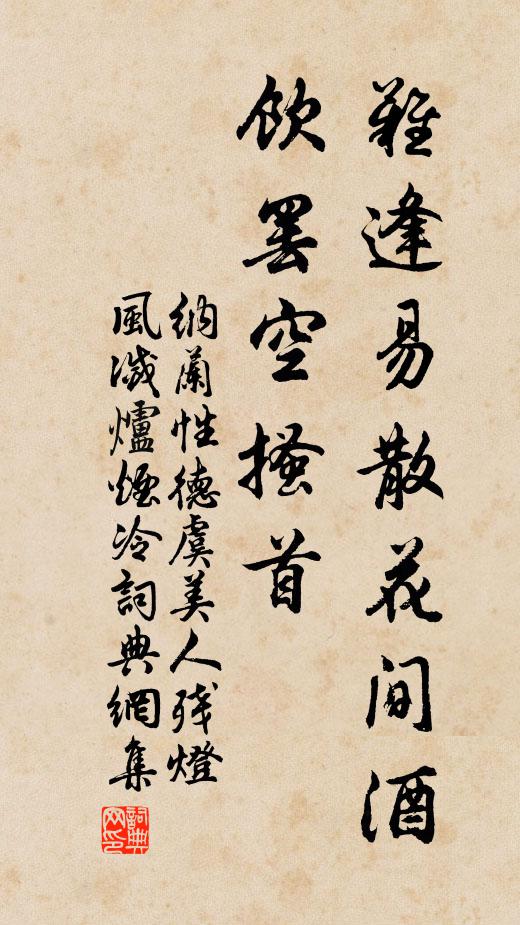 難逢易散花間酒
飲罷空搔首
納蘭性德虞美人残燈
風滅爐煙冷詞典網集
詞典
网印